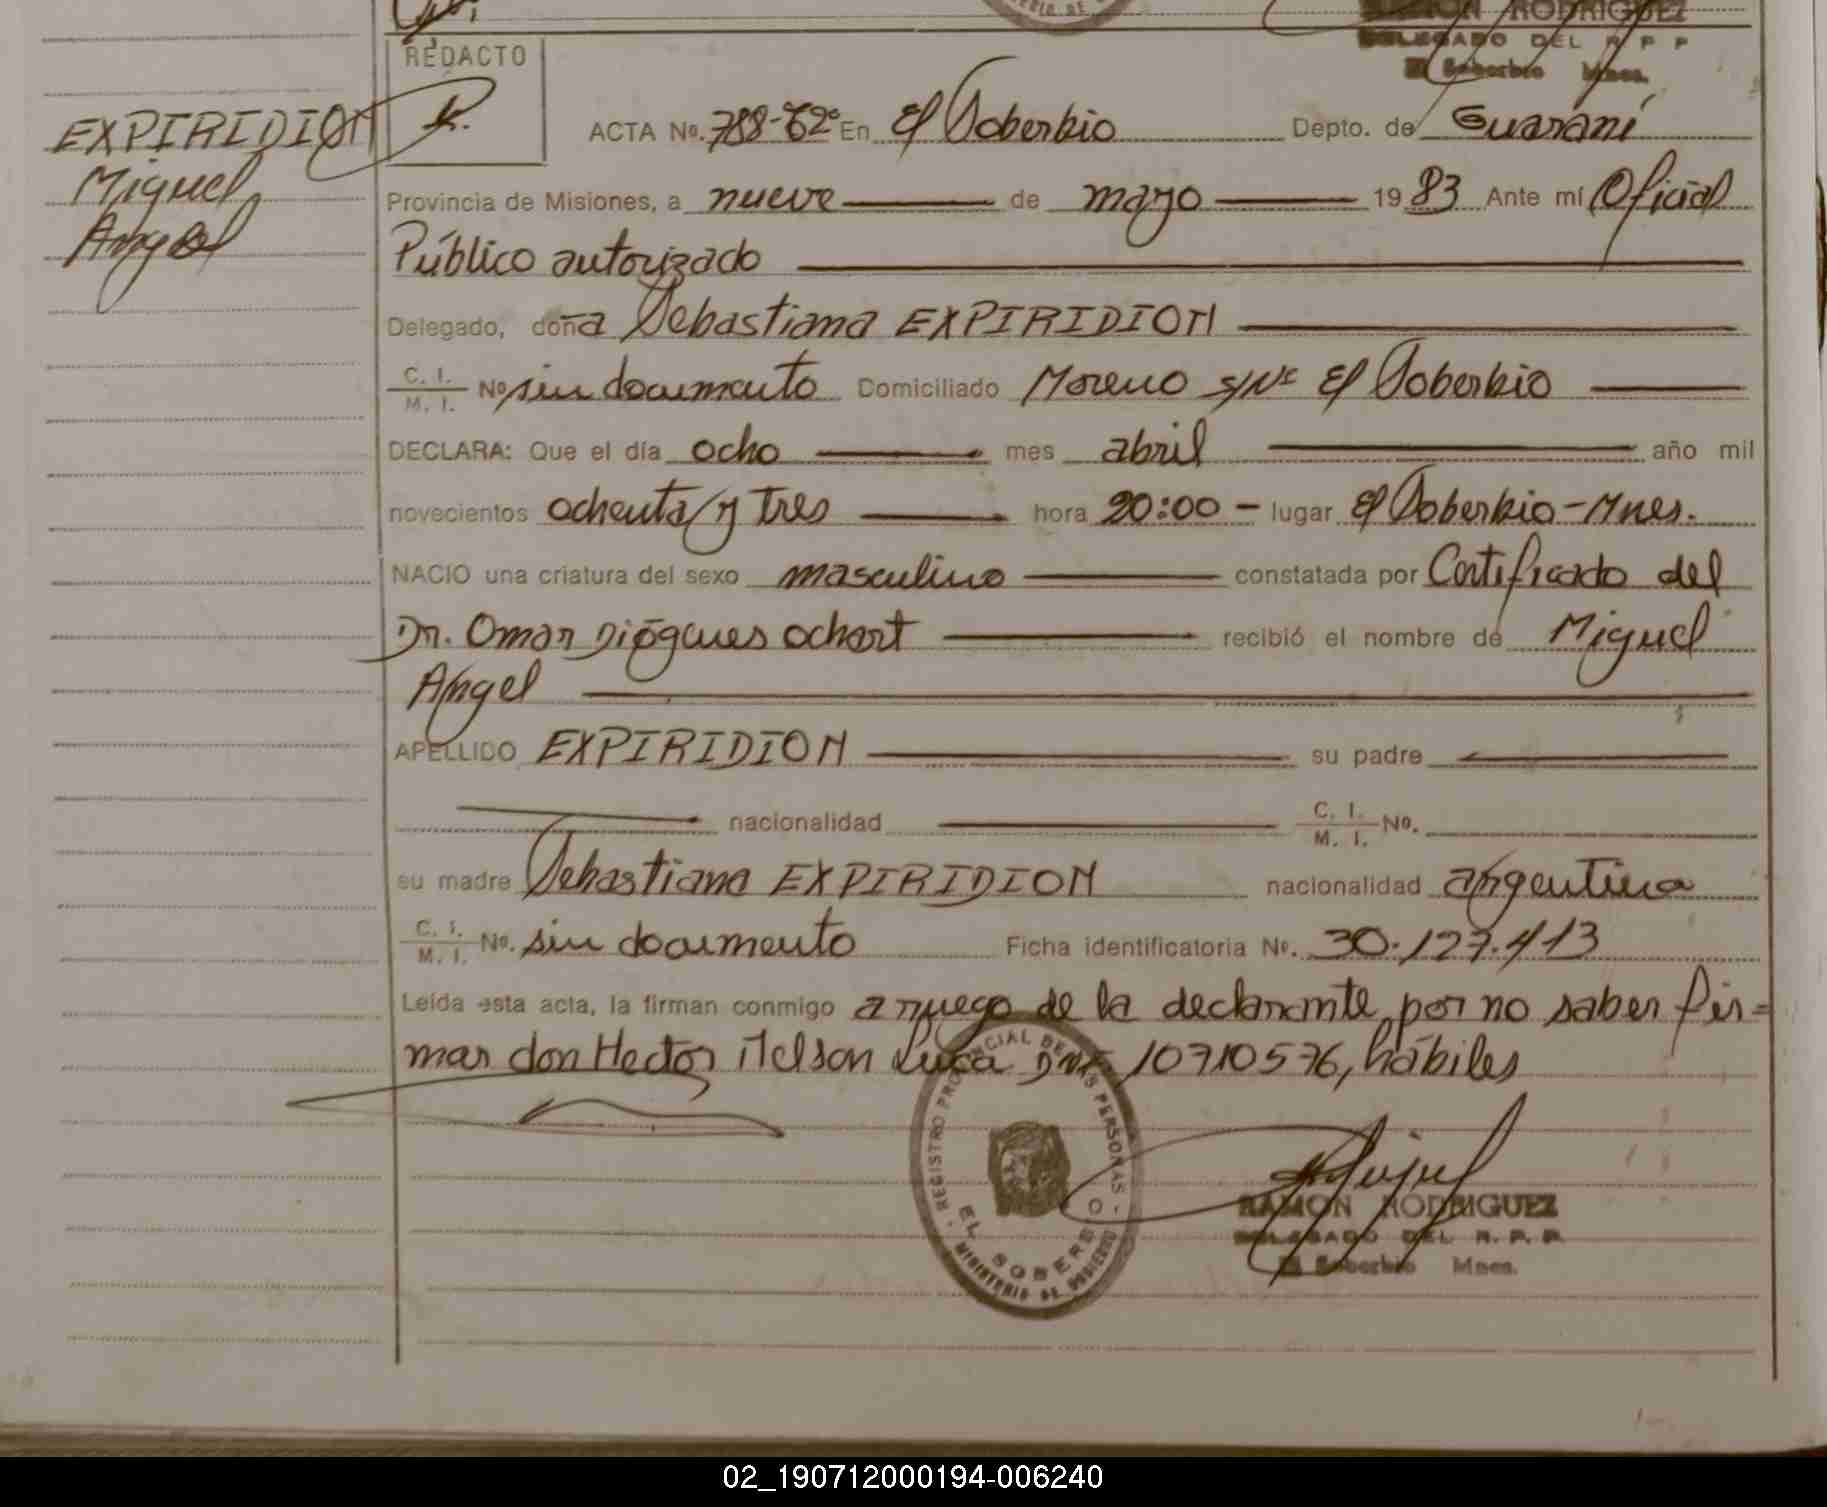 RAMON RODRIGUEZ
DELEGADO DEL R P P
El Soberbio Mnes.
REDACTO
EXPIRIDION
Miguel
Angel
ACTA No. 788-T2º En El Soberbio Depto. de Guaraní
Provincia de Misiones, a nueve de mayo 1983 Ante mí Oficial
Público autorizado
Delegado, doña Sebastiana EXPIRIDION
C. I. M. I. No sin documento Domiciliado Moreno s/Nº El Soberbio
DECLARA: Que el día ocho mes abril año mil
novecientos ochenta y tres hora 20:00 - lugar El Soberbio-Mnes.
NACIO una criatura del sexo masculino constatada por Certificado del
Dr. Omar Diógenes Ochart recibió el nombre de Miguel
Angel
APELLIDO EXPIRIDION su padre
nacionalidad C. I. M. I. No.
su madre Sebastiana EXPIRIDION nacionalidad argentina
C. I. M. I. No. sin documento Ficha identificatoria No. 30.127.413
Leída esta acta, la firman conmigo a ruego de la declarante por no saber fir=
mar don Hector Nelson Luca DNI 10710576, hábiles
REGISTRO PROVINCIAL DE LAS PERSONAS
EL SOBERBIO
MINISTERIO DE GOBIERNO
RAMON RODRIGUEZ
DELEGADO DEL R. P. P.
El Soberbio Mnes.
02_190712000194-006240